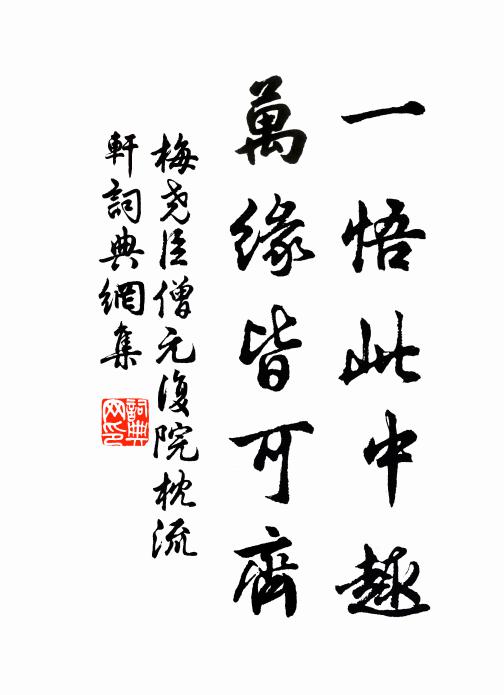 一悟此中趣
萬緣皆可齊
梅尧臣僧元復院枕流
軒詞典網集
詞典
网印